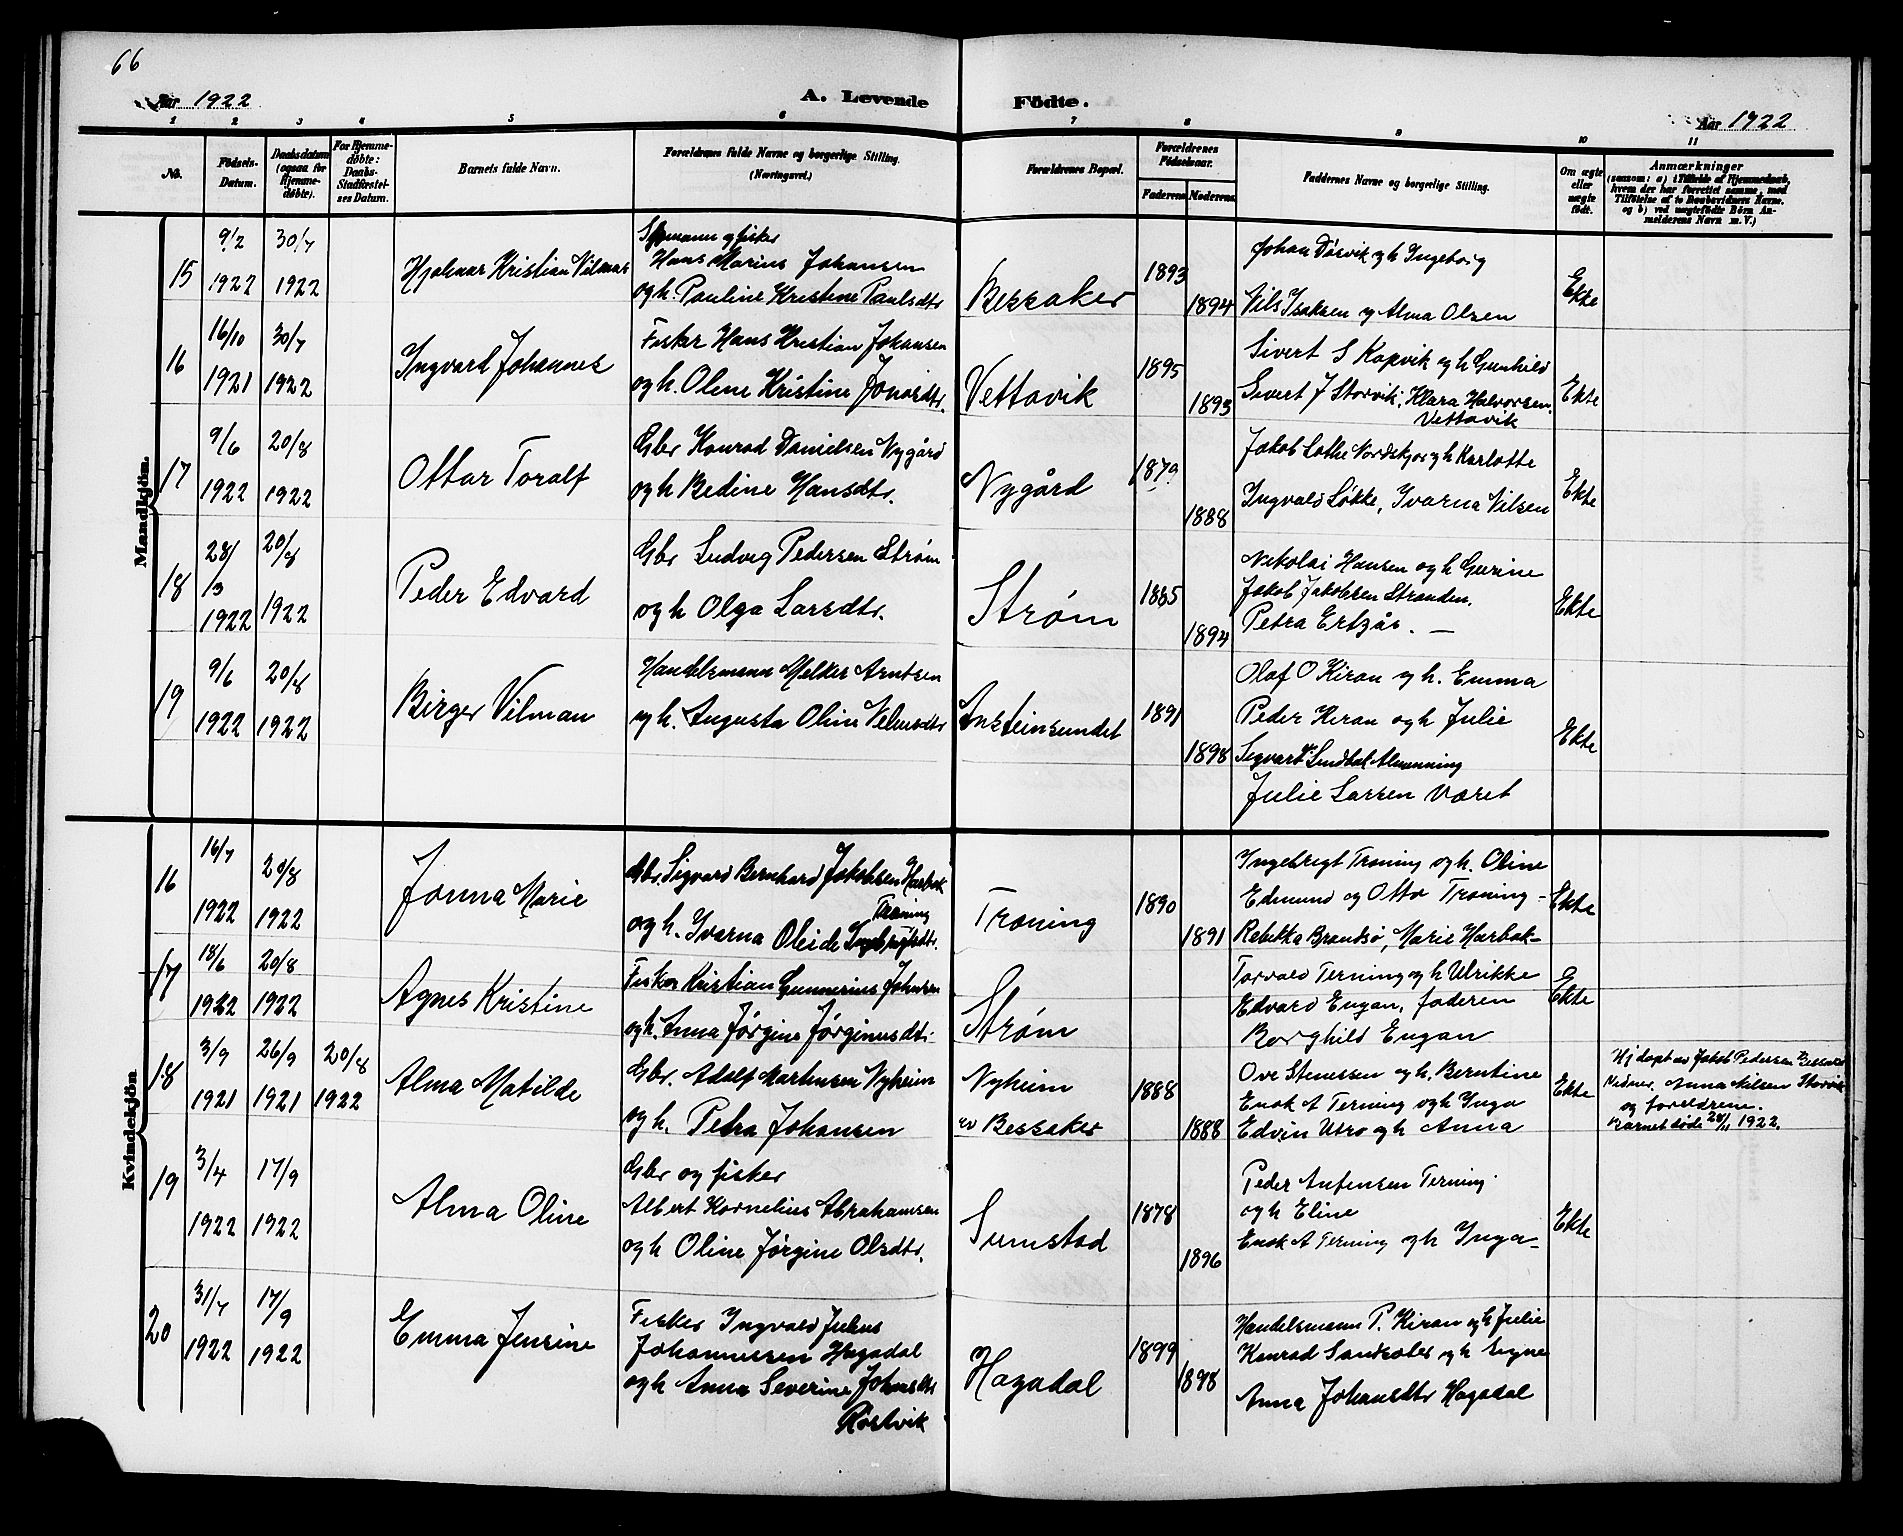 66
Aar 1922
A. Levende Födte.
Aar 1922
1 2 3 4 5 6 7 8 9 10 11
No.
Födsels-Datum.
Daabsdatum (ogsaa for Hjemmedøbte).
For Hjemmedøbte: Daabs-Stadfæstelses Datum.
Barnets fulde Navn.
Forældrenes fulde Navne og borgerlige Stilling. (Næringsvei.)
Forældrenes Bopæl.
Forældrenes Födselsaar.
Faderens Moderens
Faddernes Navne og borgerlige Stilling.
Om ægte eller uægte født.
Anmærkninger
(saasom: a) i Tilfælde af Hjemmedaab, hvem der har forrettet samme, med Tilføielse af to Daabsvidners Navne. og b) ved uægtefødte Börn Anmelderens Navn m. V.)
Mandkjön.
15
9/2 1922
30/7 1922
Hjalmar Kristian Vilmar
Hans Marius Johansen
og h. Pauline Kristine Paulsdtr
Bessaker
1893
1894
Johan Dåsvik og h Ingeborg
Nils Isaksen og Alma Olsen
Ekte
16
16/10 1921
30/7 1922
Ingvard Johannes
Fisker Hans Kristian Johansen
og h. Olene Kristine Jonasdtr.
Vettavik
1895
1895
Sivert S Kopvik og h Gunhild
Sivert J Storvik, Klara Halvorsen
Vettavik
Ekte
17
9/6 1922
20/8 1922
Ottar Toralf
Gbr Konrad Danielsen Nygård
og h Bedine Hansdtr.
Nygård
1879
1888
Jakob Lothe Nordskjør og h Karlotte
Ingvald Løkke, Ivarna Nilsen
Ekte
18
28/3 1922
20/8 1922
Peder Edvard
Gbr Ludvig Pedersen Strøm
og h Olga Larsdtr.
Strøm
1885
1894
Nikolai Hansen og h Gurine
Jakob Jakobsen Stranden.
Petra Ertzås. —
Ekte
19
9/6 1922
20/8 1922
Birger Vilman
Handelsmann Melker Arntsen
og h. Augusta Oline
Ansteinsundet
1891
1898
Olaf O Kiran og h. Emma
Peder Kiran og h Julie
Julie Larsen Været
Ekte
Kvindekjön
16
16/7 1922
20/8 1922
Jonna Marie
Gbr. Sigvard Bernhard Jakobsen Harbak
Traning
og h. Ivarna Oleide
Traning
1890
1891
Ingebrigt Traning og h. Oline
Edmund og Otto Traning -
Rebekka Brandsø, Marie Harbak-
Ekte
17
18/6 1922
20/8 1922
Agnes Kristine
Fisker Kristian Gunnerius Johnsen
og h. Anna Jørgine Jørginusdtr.
Strøm
Torvald Terning og h Ulrikke
Edvard Engan, faderen
Borghild Engan
Ekte
18
3/9 1921
26/9 1921
20/8 1922
Alma Matilde
Gbr. Adolf Martinsen Nyheim
og h. Petra Johansen
Nyheim
av Bessaker
1888
1888
Ove Stenessen og h. Berntine
Enok A Terning og h Inga
Edvin Utro og h Anna
Ekte
Hj døpt av Jakob Pedersen Bessaker
Vidner, Anna Nilsen Storvik
og foreldrene.
Barnet døde 20/11 1922.
19
3/4 1922
17/9 1922
Alma Oline
Gbr og fisker
Albert Kornelius Abrahamsen
og h Oline Jørgine Olsdtr.
Sumstad
1878
1896
Peder Antensen Terning
og h Eline
Enok A Terning og h Inga-
Ekte
20
31/7 1922
17/9 1922
Emma Jensine
Fisker Ingvald Julius
Johannessen Hagadal
og h Anna Severine
Røstvik
Hagadal
1899
1898
Handelsmann P. Kiran og h Julie
Konrad og h Signe
Anna Johansdtr Hagadal